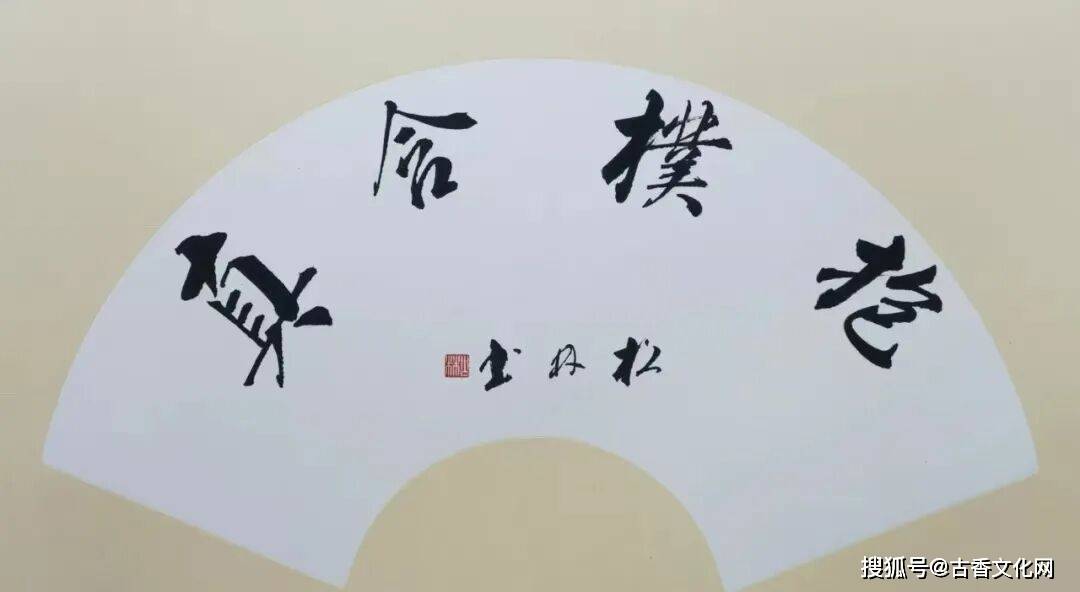 抱樸含真
松丹书
搜狐号@古香文化网